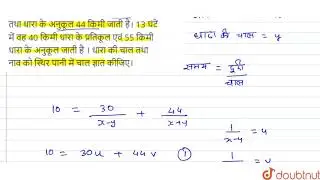 तथा धारा के अनुकूल 44 किमी जाती है। 13 घंटे
में वह 40 किमी धारा के प्रतिकूल एवं 55 किमी
धारा के अनुकूल जाती है । धारा की चाल तथा
नाव की स्थिर पानी में चाल ज्ञात कीजिए।
धारा की चाल = y
समय = दूरी / चाल
10 = 30/x-y + 44/x+y
1/x-y = u
10 = 30u + 44v ①
1/ = v
doubtnut